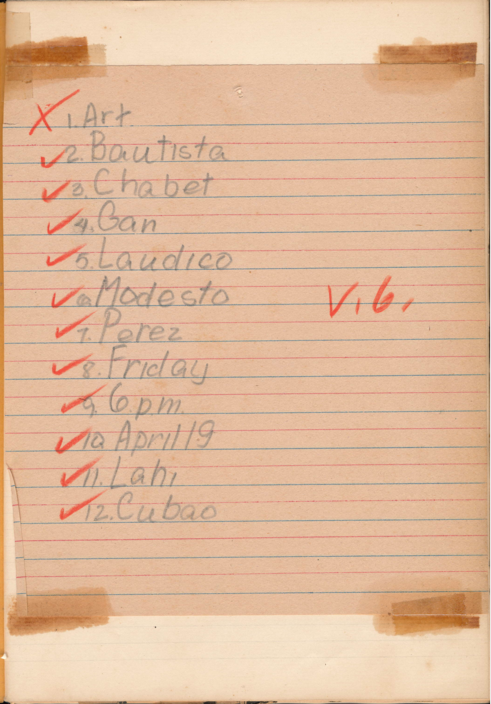 1. Art
2. Bautista
3. Chabet
4. Gan
5. Laudico
6. Modesto
7. Perez
8. Friday
9. 6 p.m.
10. April 19
11. Lahi
12. Cubao
V.G.